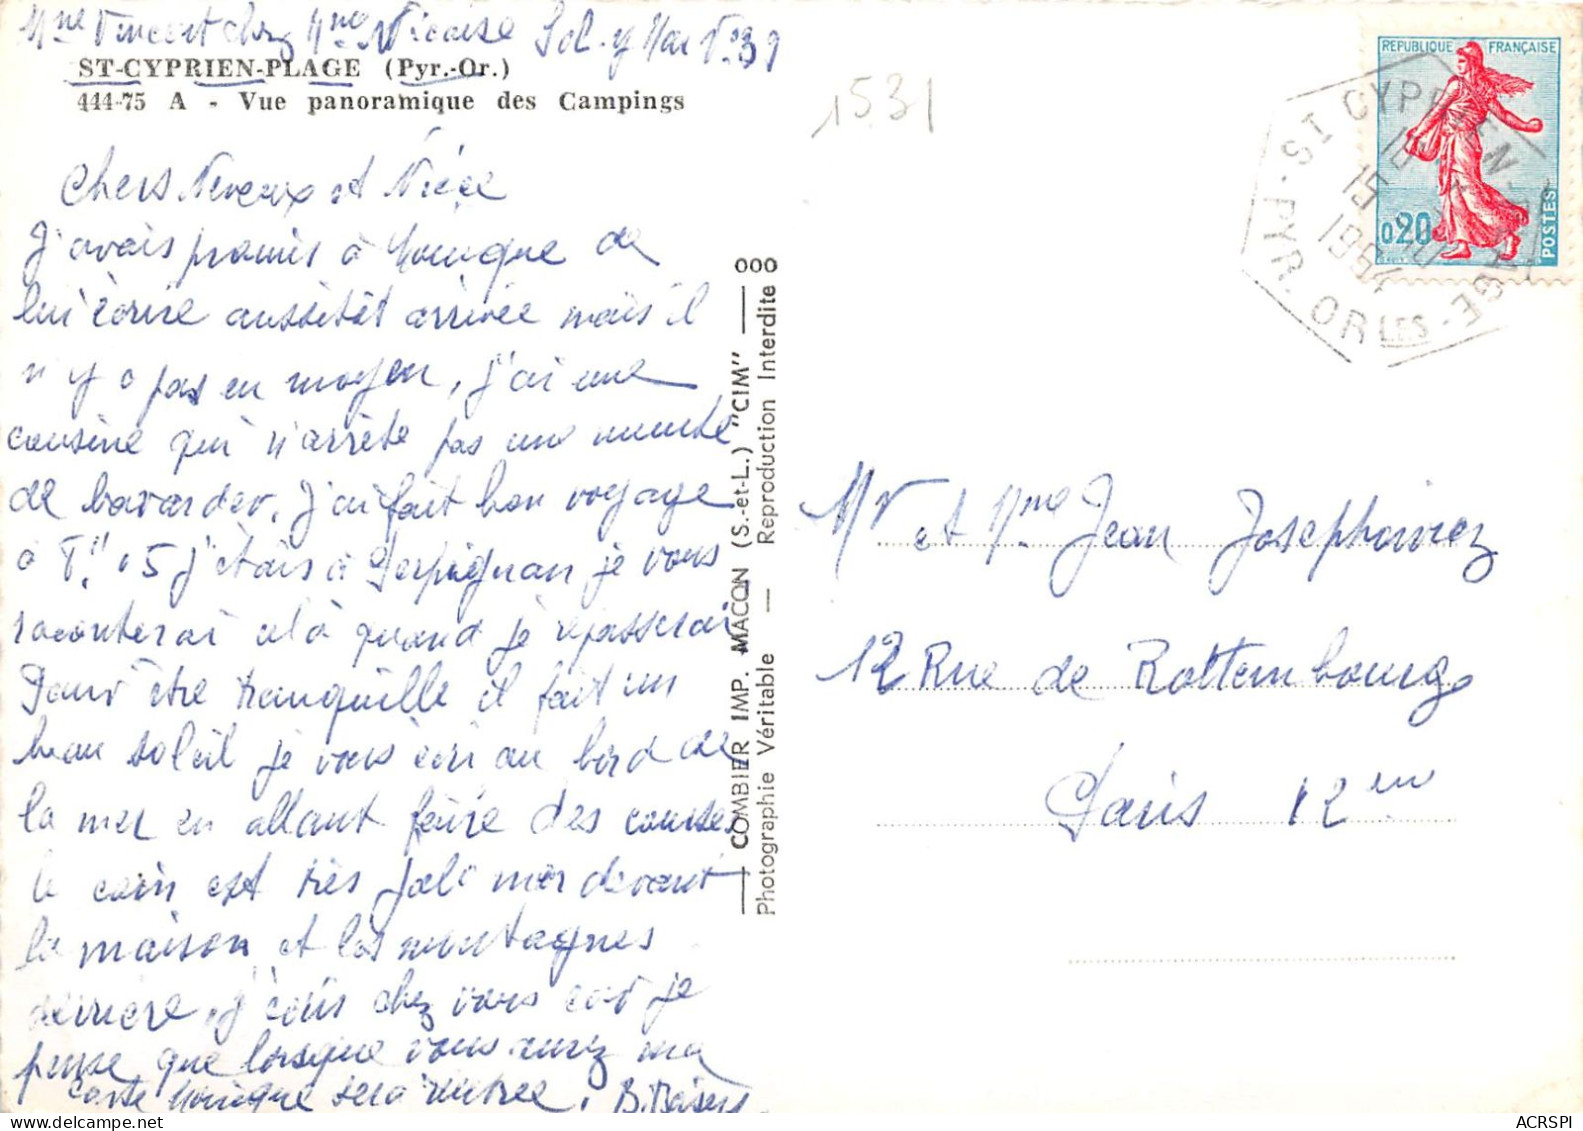 Mme Vincent chez Mme Nicaise Sol-y Mar N°39
ST-CYPRIEN-PLAGE (Pyr.-Or.)
444-75 A - Vue panoramique des Campings
1531
Chers Neveux et Nièce
J'avais promis à Monique de
lui écrire aussitôt arrivée mais il
n'y a pas eu moyen, j'ai une
cousine qui n'arrête pas une minute
de bavarder, j'ai fait bon voyage
à 5 j'étais à Perpignan je vous
raconterai cela quand je repasserai
Pour être tranquille il fait un
beau soleil je vous écris au bord de
la mer en allant faire des courses
le coin est très joli mer devant
la maison et les montagnes
derrière, j'écris chez vous car je
pense que lorsque vous aurez ma
carte Monique sera rentrée. B. Baisers
COMBIER IMP. MACON (S.-et-L.) "CIM"
Photographie Véritable — Reproduction Interdite
000
REPUBLIQUE FRANÇAISE
0,20
POSTES
ST CYPRIEN-PLAGE-LES
PYR. ORLES
1964
Mr et Mme Jean Josephowiez
12 Rue de Rottembourg
Paris 12em
ACRSPI